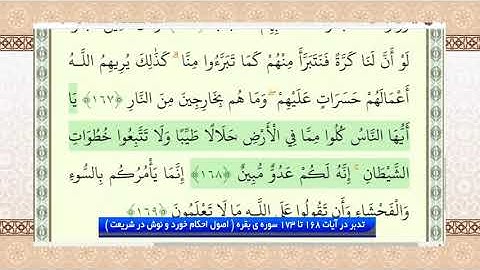 لَوْ أَنَّ لَنَا كَرَّةً فَنَتَبَرَّأَ مِنْهُمْ كَمَا تَبَرَّءُوا مِنَّا ۗ كَذَٰلِكَ يُرِيهِمُ اللَّهُ
أَعْمَالَهُمْ حَسَرَاتٍ عَلَيْهِمْ ۖ وَمَا هُم بِخَارِجِينَ مِنَ النَّارِ ﴿١٦٧﴾ يَا
أَيُّهَا النَّاسُ كُلُوا مِمَّا فِي الْأَرْضِ حَلَالًا طَيِّبًا وَلَا تَتَّبِعُوا خُطُوَاتِ
الشَّيْطَانِ ۚ إِنَّهُ لَكُمْ عَدُوٌّ مُّبِينٌ ﴿١٦٨﴾ إِنَّمَا يَأْمُرُكُم بِالسُّوءِ
وَالْفَحْشَاءِ وَأَن تَقُولُوا عَلَى اللَّهِ مَا لَا تَعْلَمُونَ ﴿١٦٩﴾
تدبر در آیات ۱۶۸ تا ۱۷۳ سوره ی بقره ( اصول احکام خورد و نوش در شریعت )